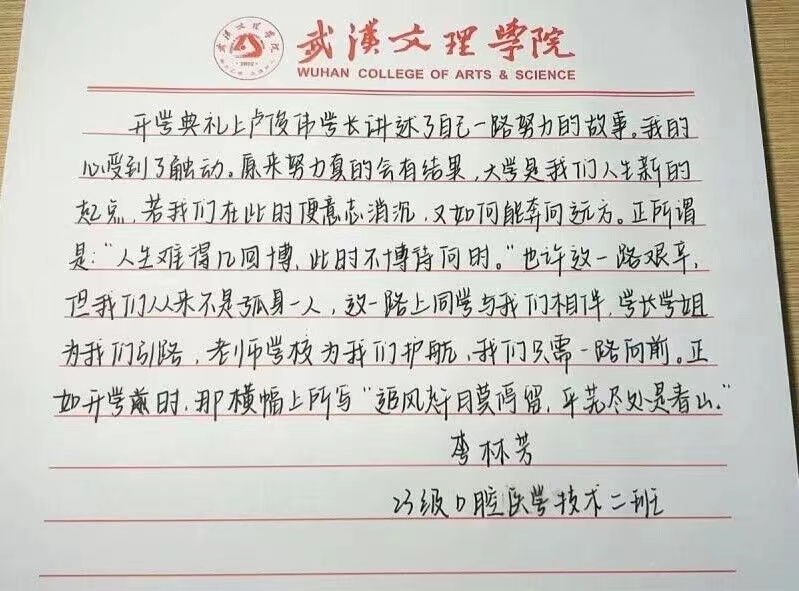 武漢文理學院
WUHAN COLLEGE OF ARTS & SCIENCE
开学典礼上卢俊伟学长讲述了自己一路努力的故事。我的
心受到了触动。原来努力真的会有结果，大学是我们人生新的
起点，若我们在此时便意志消沉，又如何能奔向远方。正所谓
是：“人生难得几回博，此时不博待何时。”也许这一路艰辛，
但我们从来不是孤身一人，这一路上同学与我们相伴，学长学姐
为我们引路，老师学校为我们护航，我们只需一路向前。正
如开学典时，那横幅上所写“追风赶月莫停留，平芜尽处是春山。”
李林芳
23级口腔医学技术二班